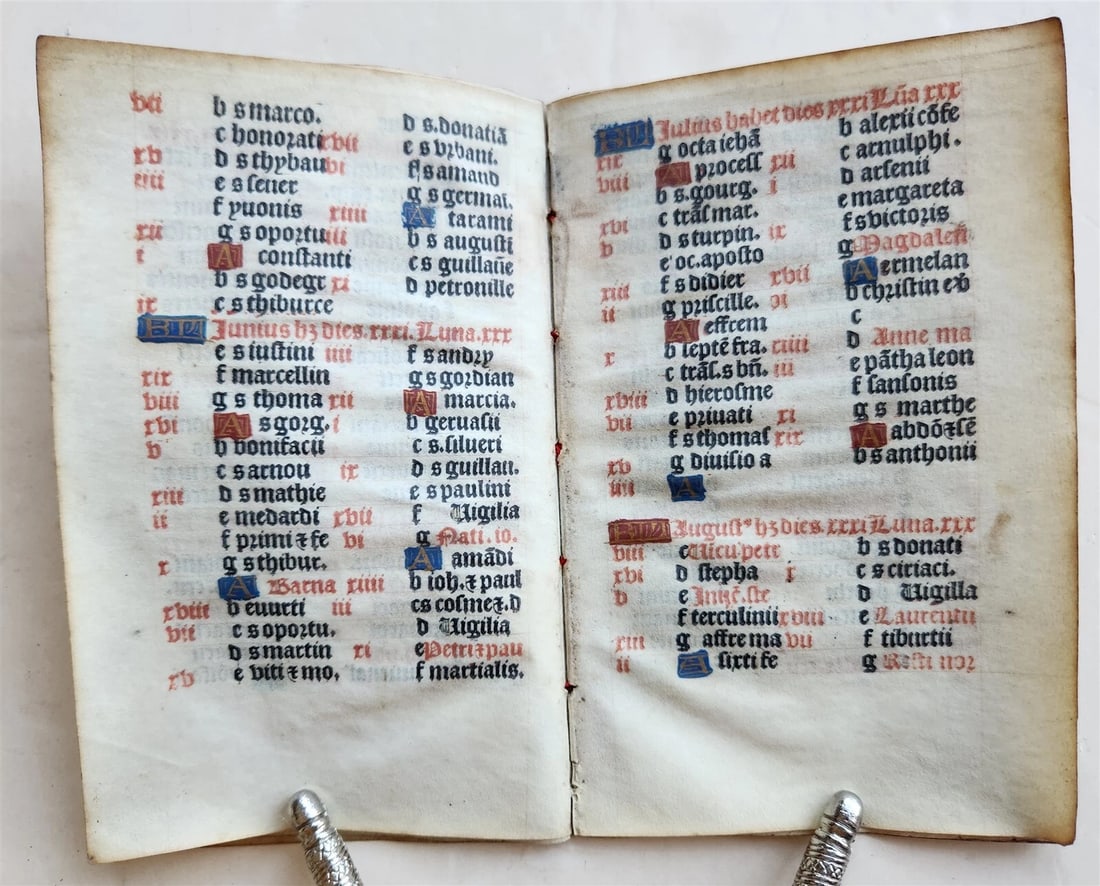 vii b s marco.
c honorati
xv D s thybau
iiii e s sener
f yuonis
xii g s oportu
i A constanti
b s godegr
ix c s thiburce
xvii D s. donatiā
vi e s vrbani.
f s amand
g s germai.
xiiii A tarami
iii b s augusti
c s guillaūe
xi D petronille
KL Junius hȝ dies. xxxi. Luna. xxx
e s iustini
xix f marcellin
viii g s thoma
xvi A s gorg.
v b bonifacii
c s arnou
xiii D s mathie
ii e medardi
f primi ⁊ fe
x g s thibur.
A Barna
xviii b euurti
vii c s oportu.
D s martin
xv e viti ⁊ mo.
iiii f sandry
g s gordian
xii A marcia.
i b geruasii
c s. silueri
ix D s guillau.
e s paulini
xvii f Uigilia
vi g Nati. io.
A amādi
xiiii b ioh. ⁊ paul
iii c s cosme ⁊. D
D Uigilia
xi e Petri ⁊ pau
f martialis.
KL Julius habet dies xxxi Lūa xxx
xix g octa iehā
viii A process
b s. gourg.
xvi c trās mar.
v D s turpin.
e oc. aposto
xiii f s didier
ii g priscille.
A effcem
x b leptē fra.
c trās. s bn̄.
xviii D hierosme
vii e priuati
f s thomas
xv g diuisio a
iiii A
b alexii cōfe
xii c arnulphi.
i D arsenii
e margareta
ix f s victoris
g Magdalen̄
xvii A ermelan
vi b christin eb
c
xiiii D Anne ma
iii e pātha leon
f sansonis
xi g s marthe
xix A abdō ⁊ sē
b s anthonii
KL August⁹ hȝ dies. xxxi Luna. xxx
viii c Uicu petr
xvi D stepha
v e Inuē. ste
f terculinii
xiii g affre ma
ii A sixti fe
b s donati
x c s ciriaci.
D Uigilla
xviii e Laurentii
vii f tiburtii
g